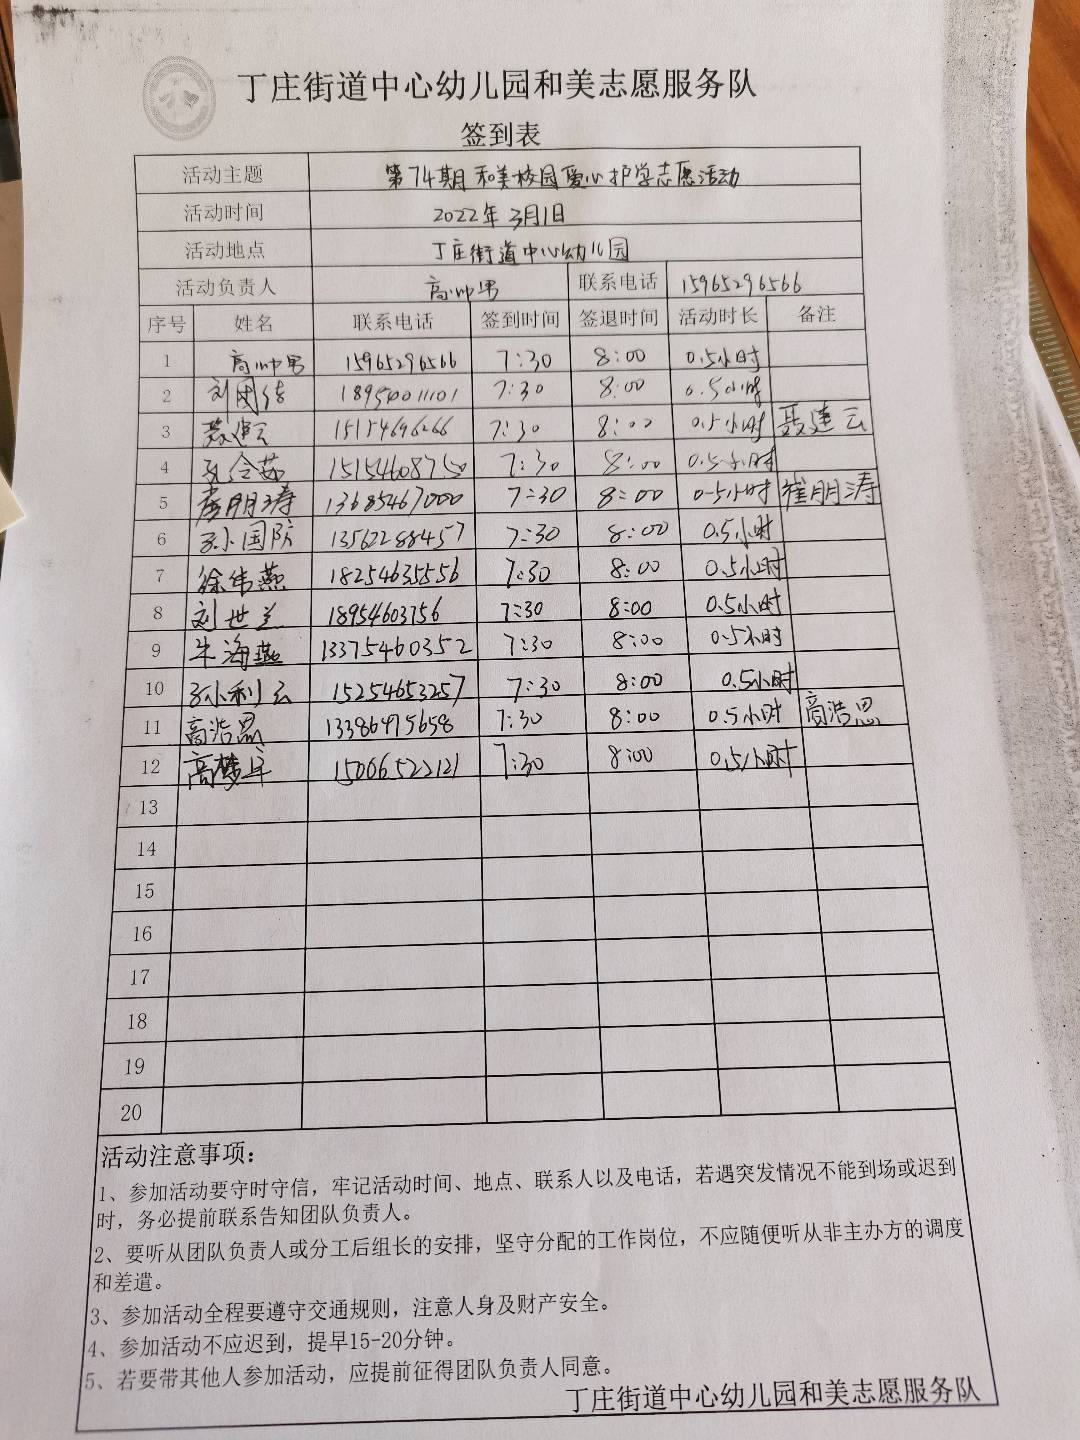 丁庄街道中心幼儿园和美志愿服务队
签到表
活动主题 第74期和美校园爱心护学志愿活动
活动时间 2022年3月1日
活动地点 丁庄街道中心幼儿园
活动负责人 高帅男 联系电话 15965296566
序号 姓名 联系电话 签到时间 签退时间 活动时长 备注
1 高帅男 15965296566 7:30 8:00 0.5小时
2 刘团结 18950011101 7:30 8:00 0.5小时
3 聂建云 15154696266 7:30 8:00 0.5小时 聂建云
4 15154608750 7:30 8:00 0.5小时
5 崔朋涛 13685467000 7:30 8:00 0.5小时 崔朋涛
6 孙国防 13562288457 7:30 8:00 0.5小时
7 徐伟燕 18254635556 7:30 8:00 0.5小时
8 刘世兰 18954603756 7:30 8:00 0.5小时
9 朱海燕 13375460352 7:30 8:00 0.5小时
10 孙利云 15254653257 7:30 8:00 0.5小时
11 高浩思 13386475658 7:30 8:00 0.5小时 高浩思
12 高梦 15066522121 7:30 8:00 0.5小时
13
14
15
16
17
18
19
20
活动注意事项：
1、参加活动要守时守信，牢记活动时间、地点、联系人以及电话，若遇突发情况不能到场或迟到
时，务必提前联系告知团队负责人。
2、要听从团队负责人或分工后组长的安排，坚守分配的工作岗位，不应随便听从非主办方的调度
和差遣。
3、参加活动全程要遵守交通规则，注意人身及财产安全。
4、参加活动不应迟到，提早15-20分钟。
5、若要带其他人参加活动，应提前征得团队负责人同意。
丁庄街道中心幼儿园和美志愿服务队